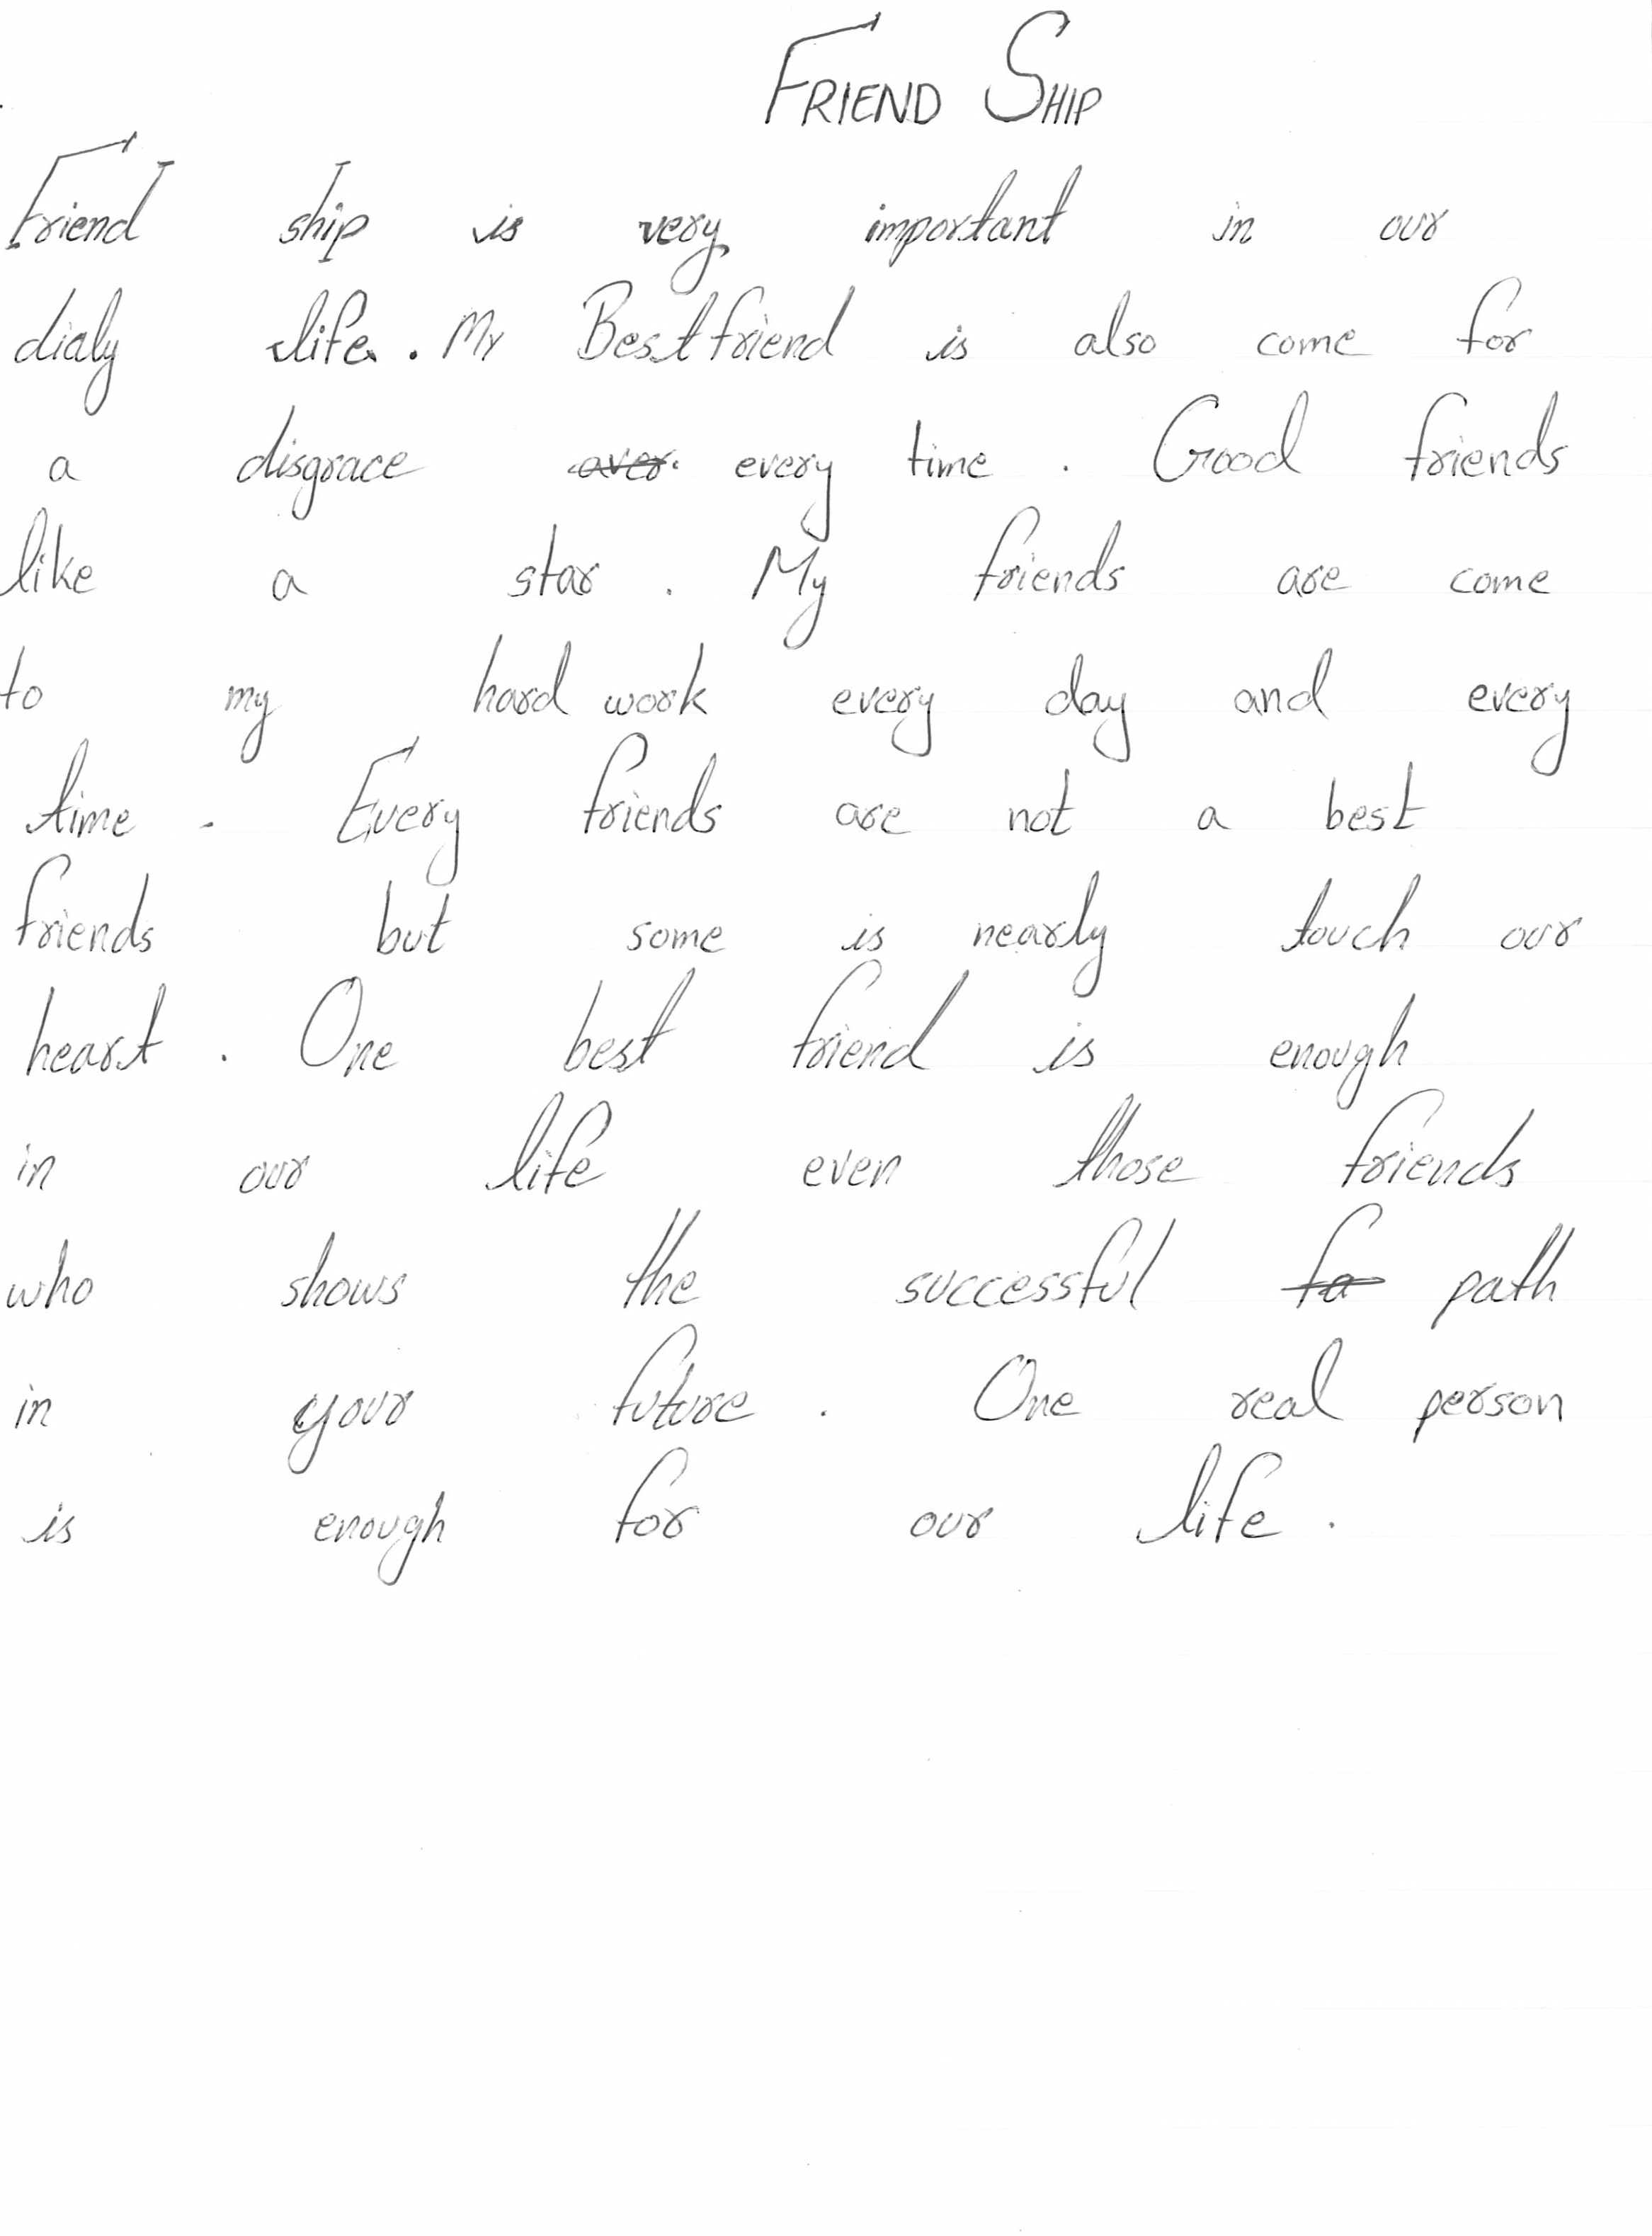 FRIEND SHIP
Friend ship is very important in our
dialy life. My Bestfriend is also come for
a disgrace over every time. Good friends
like a star. My friends are come
to my hard work every day and every
time. Every friends are not a best
friends but some is nearly touch our
heart. One best friend is enough
in our life even those friends
who shows the successful fa path
in your future. One real person
is enough for our life.